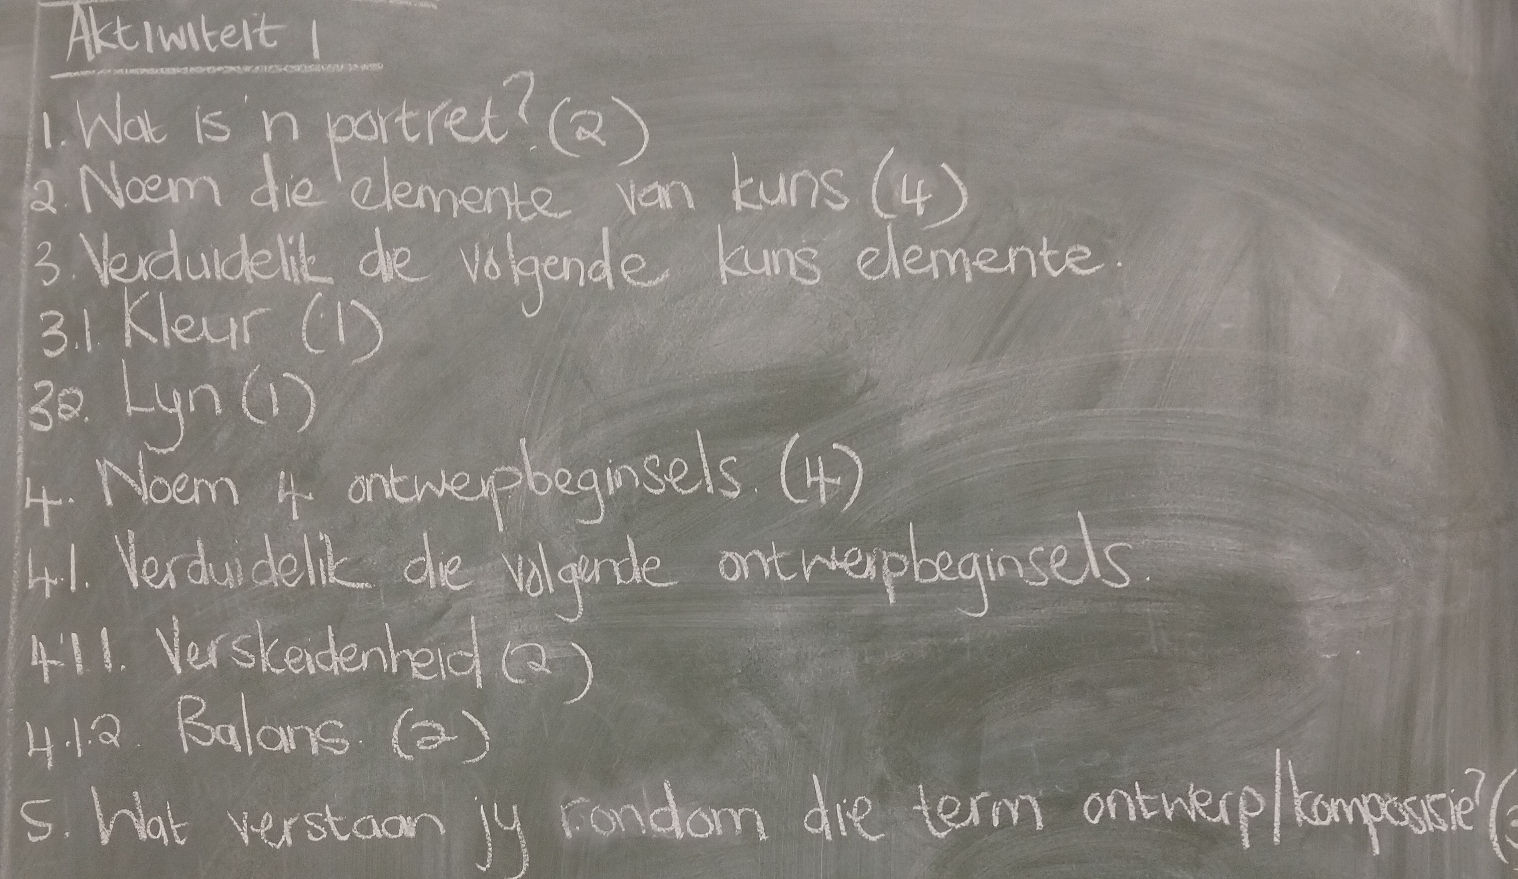 Aktiwiteit 1
1. Wat is 'n portret? (2)
2. Noem die elemente van kuns (4)
3. Verduidelik die volgende kuns elemente.
3.1. Kleur (1)
32. Lyn (1)
4. Noem 4 ontwerpbeginsels. (4)
4.1. Verduidelik die volgende ontwerpbeginsels.
4.1.1. Verskeidenheid (2)
4.1.2. Balans. (2)
5. Wat verstaan jy rondom die term ontwerp/komposisie? (